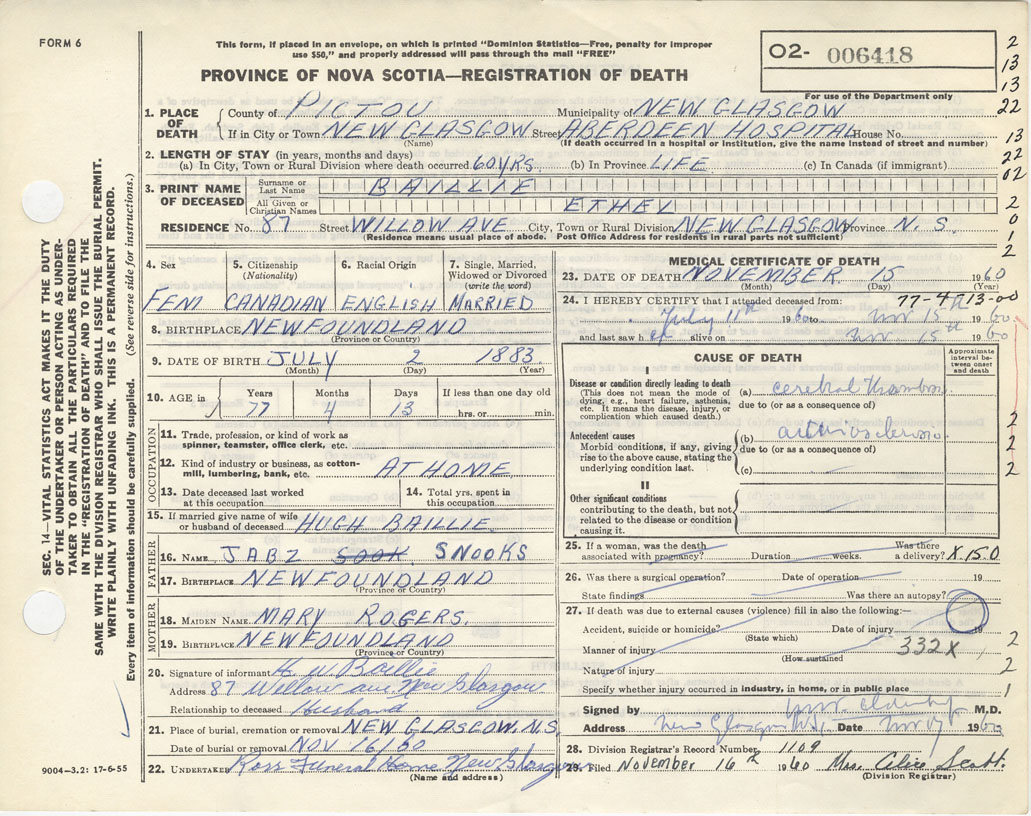 FORM 6
This form, if placed in an envelope, on which is printed "Dominion Statistics—Free, penalty for improper
use $50," and properly addressed will pass through the mail "FREE"
PROVINCE OF NOVA SCOTIA—REGISTRATION OF DEATH
O2- 006418
For use of the Department only
2
13
13
22
13
22
02
2
0
1
2
1. PLACE OF DEATH County of PICTOU Municipality of NEW GLASGOW
If in City or Town NEW GLASGOW Street ABERDEEN HOSPITAL House No.
(Name) (If death occurred in a hospital or institution, give the name instead of street and number)
2. LENGTH OF STAY (in years, months and days)
(a) In City, Town or Rural Division where death occurred 60 YRS (b) In Province LIFE (c) In Canada (if immigrant)
3. PRINT NAME OF DECEASED Surname or Last Name BAILLIE
All Given or Christian Names ETHEL
RESIDENCE No. 87 Street WILLOW AVE City, Town or Rural Division NEW GLASGOW Province N. S.
(Residence means usual place of abode. Post Office Address for residents in rural parts not sufficient)
4. Sex 5. Citizenship (Nationality) 6. Racial Origin 7. Single, Married, Widowed or Divorced (write the word)
FEM CANADIAN ENGLISH MARRIED
8. BIRTHPLACE NEWFOUNDLAND
(Province or Country)
9. DATE OF BIRTH JULY 2 1883
(Month) (Day) (Year)
10. AGE in Years Months Days If less than one day old
77 4 13 hrs. or min.
OCCUPATION
11. Trade, profession, or kind of work as spinner, teamster, office clerk, etc.
12. Kind of industry or business, as cotton-mill, lumbering, bank, etc. AT HOME
13. Date deceased last worked at this occupation 14. Total yrs. spent in this occupation
15. If married give name of wife or husband of deceased HUGH BAILLIE
FATHER
16. NAME JABZ SNOOKS
17. BIRTHPLACE NEWFOUNDLAND
(Province or Country)
MOTHER
18. MAIDEN NAME MARY ROGERS.
19. BIRTHPLACE NEWFOUNDLAND
(Province or Country)
20. Signature of informant H. W. Baillie
Address 87 Willow ave New Glasgow
Relationship to deceased Husband
21. Place of burial, cremation or removal NEW GLASGOW, N.S.
Date of burial or removal NOV 16/60
22. UNDERTAKER Ross Funeral Home New Glasgow
(Name and address)
MEDICAL CERTIFICATE OF DEATH
23. DATE OF DEATH NOVEMBER 15 1960
(Month) (Day) (Year)
24. I HEREBY CERTIFY that I attended deceased from: 77-4-13-00
July 11th 1960 to Nov 15 1960
and last saw her alive on Nov 15th 1960
CAUSE OF DEATH
Approximate interval between onset and death
I
Disease or condition directly leading to death
(This does not mean the mode of dying, e.g., heart failure, asthenia, etc. It means the disease, injury, or complication which caused death.)
(a) cerebral
due to (or as a consequence of)
Antecedent causes
Morbid conditions, if any, giving rise to the above cause, stating the underlying condition last.
(b)
due to (or as a consequence of)
(c)
2
2
2
II
Other significant conditions
contributing to the death, but not related to the disease or condition causing it.
25. If a woman, was the death associated with pregnancy? Duration weeks. Was there a delivery? X 15.0
26. Was there a surgical operation? Date of operation 19
State findings Was there an autopsy?
27. If death was due to external causes (violence) fill in also the following:—
Accident, suicide or homicide? Date of injury 19
(State which)
Manner of injury 332X 2
(How sustained
Nature of injury 2
Specify whether injury occurred in industry, in home, or in public place 1
Signed by M.D.
Address New Glasgow N.S. Date Nov 1960
28. Division Registrar's Record Number 1109
29. Filed November 16th 1960 Mrs. Alice Scott.
(Division Registrar)
SEC. 14—VITAL STATISTICS ACT MAKES IT THE DUTY
OF THE UNDERTAKER OR PERSON ACTING AS UNDER-
TAKER TO OBTAIN ALL THE PARTICULARS REQUIRED
IN THE "REGISTRATION OF DEATH" AND TO FILE THE
SAME WITH THE DIVISION REGISTRAR WHO SHALL ISSUE THE BURIAL PERMIT.
WRITE PLAINLY WITH UNFADING INK. THIS IS A PERMANENT RECORD.
Every item of information should be carefully supplied. (See reverse side for instructions.)
9004-3.2: 17-6-55